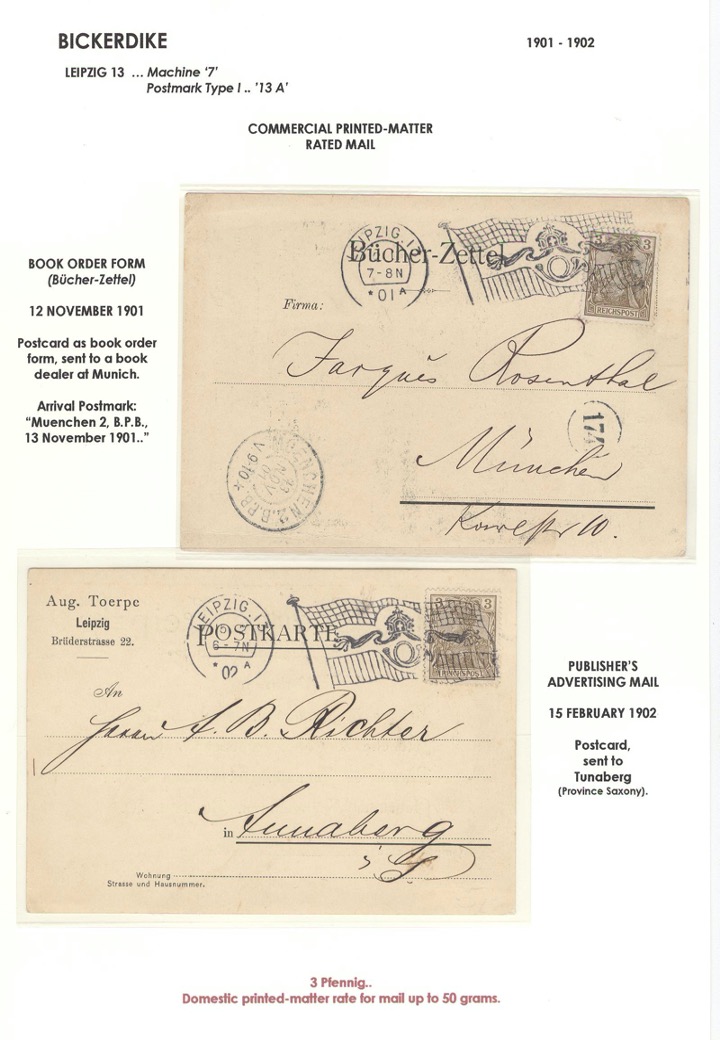 BICKERDIKE
1901 - 1902
LEIPZIG 13 ... Machine '7'
Postmark Type I .. '13 A'
COMMERCIAL PRINTED-MATTER
RATED MAIL
BOOK ORDER FORM
(Bücher-Zettel)
12 NOVEMBER 1901
Postcard as book order
form, sent to a book
dealer at Munich.
Arrival Postmark:
“Muenchen 2, B.P.B.,
13 November 1901..”
LEIPZIG.13
7-8N
* 01 A
Bücher-Zettel
3 3
REICHSPOST
Firma:
Jacques Rosenthal
174
München
MUENCHEN 2 B.P.B.
NOV
V.9-10
10.
Aug. Toerpe
Leipzig
Brüderstrasse 22.
LEIPZIG.13
6-7N
* 02 A
POSTKARTE
3 3
REICHSPOST
An
Herrn A. B. Richter
in Annaberg
i/S
Wohnung
Strasse und Hausnummer.
PUBLISHER'S
ADVERTISING MAIL
15 FEBRUARY 1902
Postcard,
sent to
Tunaberg
(Province Saxony).
3 Pfennig..
Domestic printed-matter rate for mail up to 50 grams.